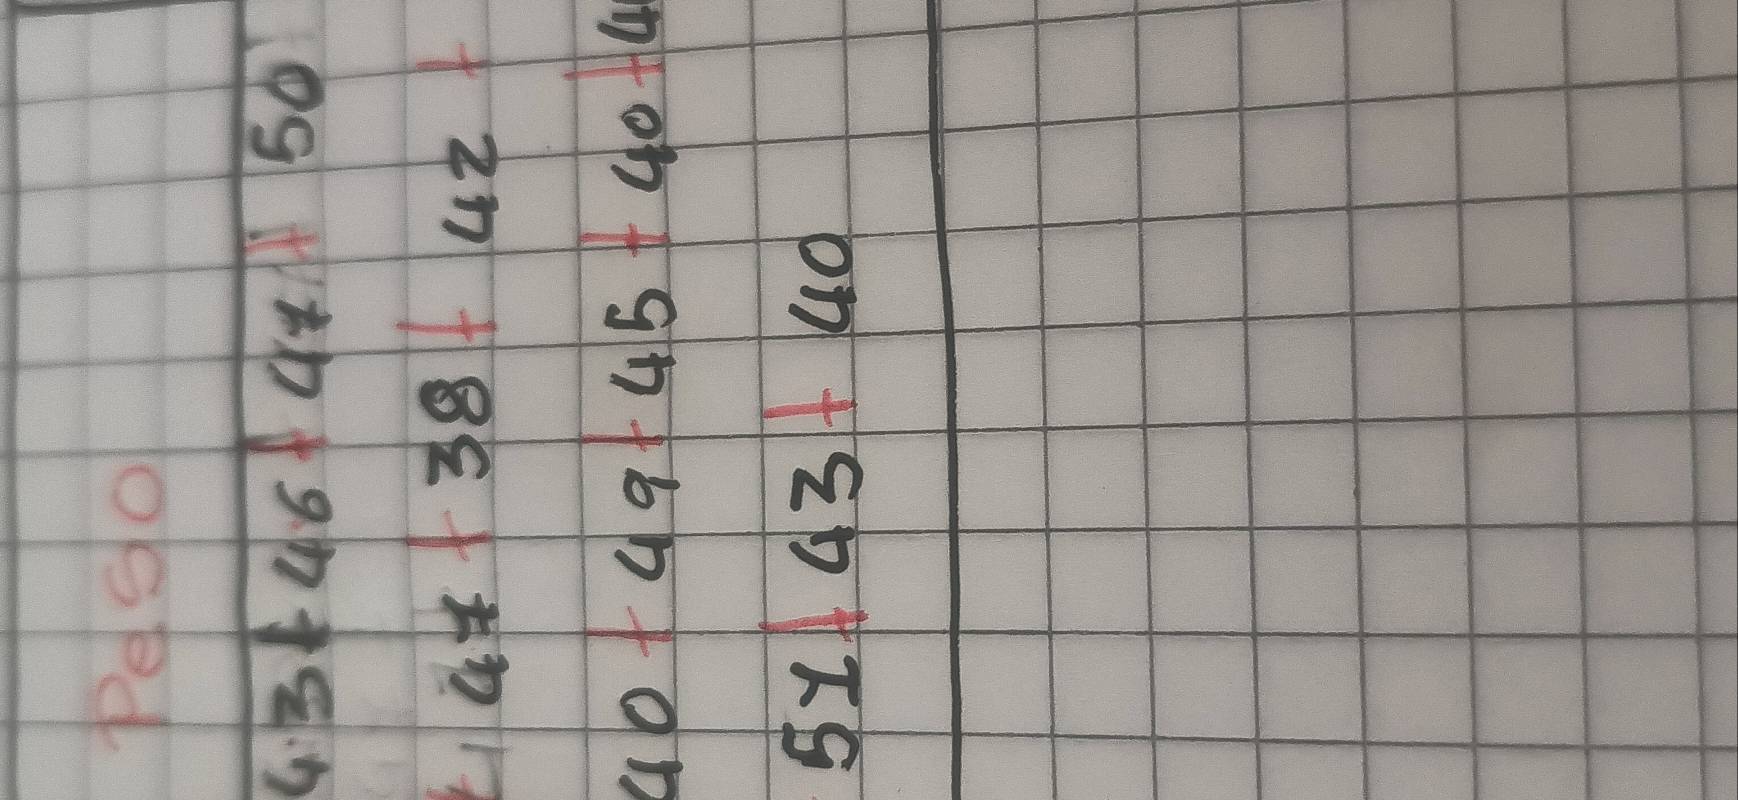 Peso
43 + 46 + 47 + 50
+ 47 + 38 + 42 +
40 + 49 + 45 + 40 + 4
51 + 43 + 40